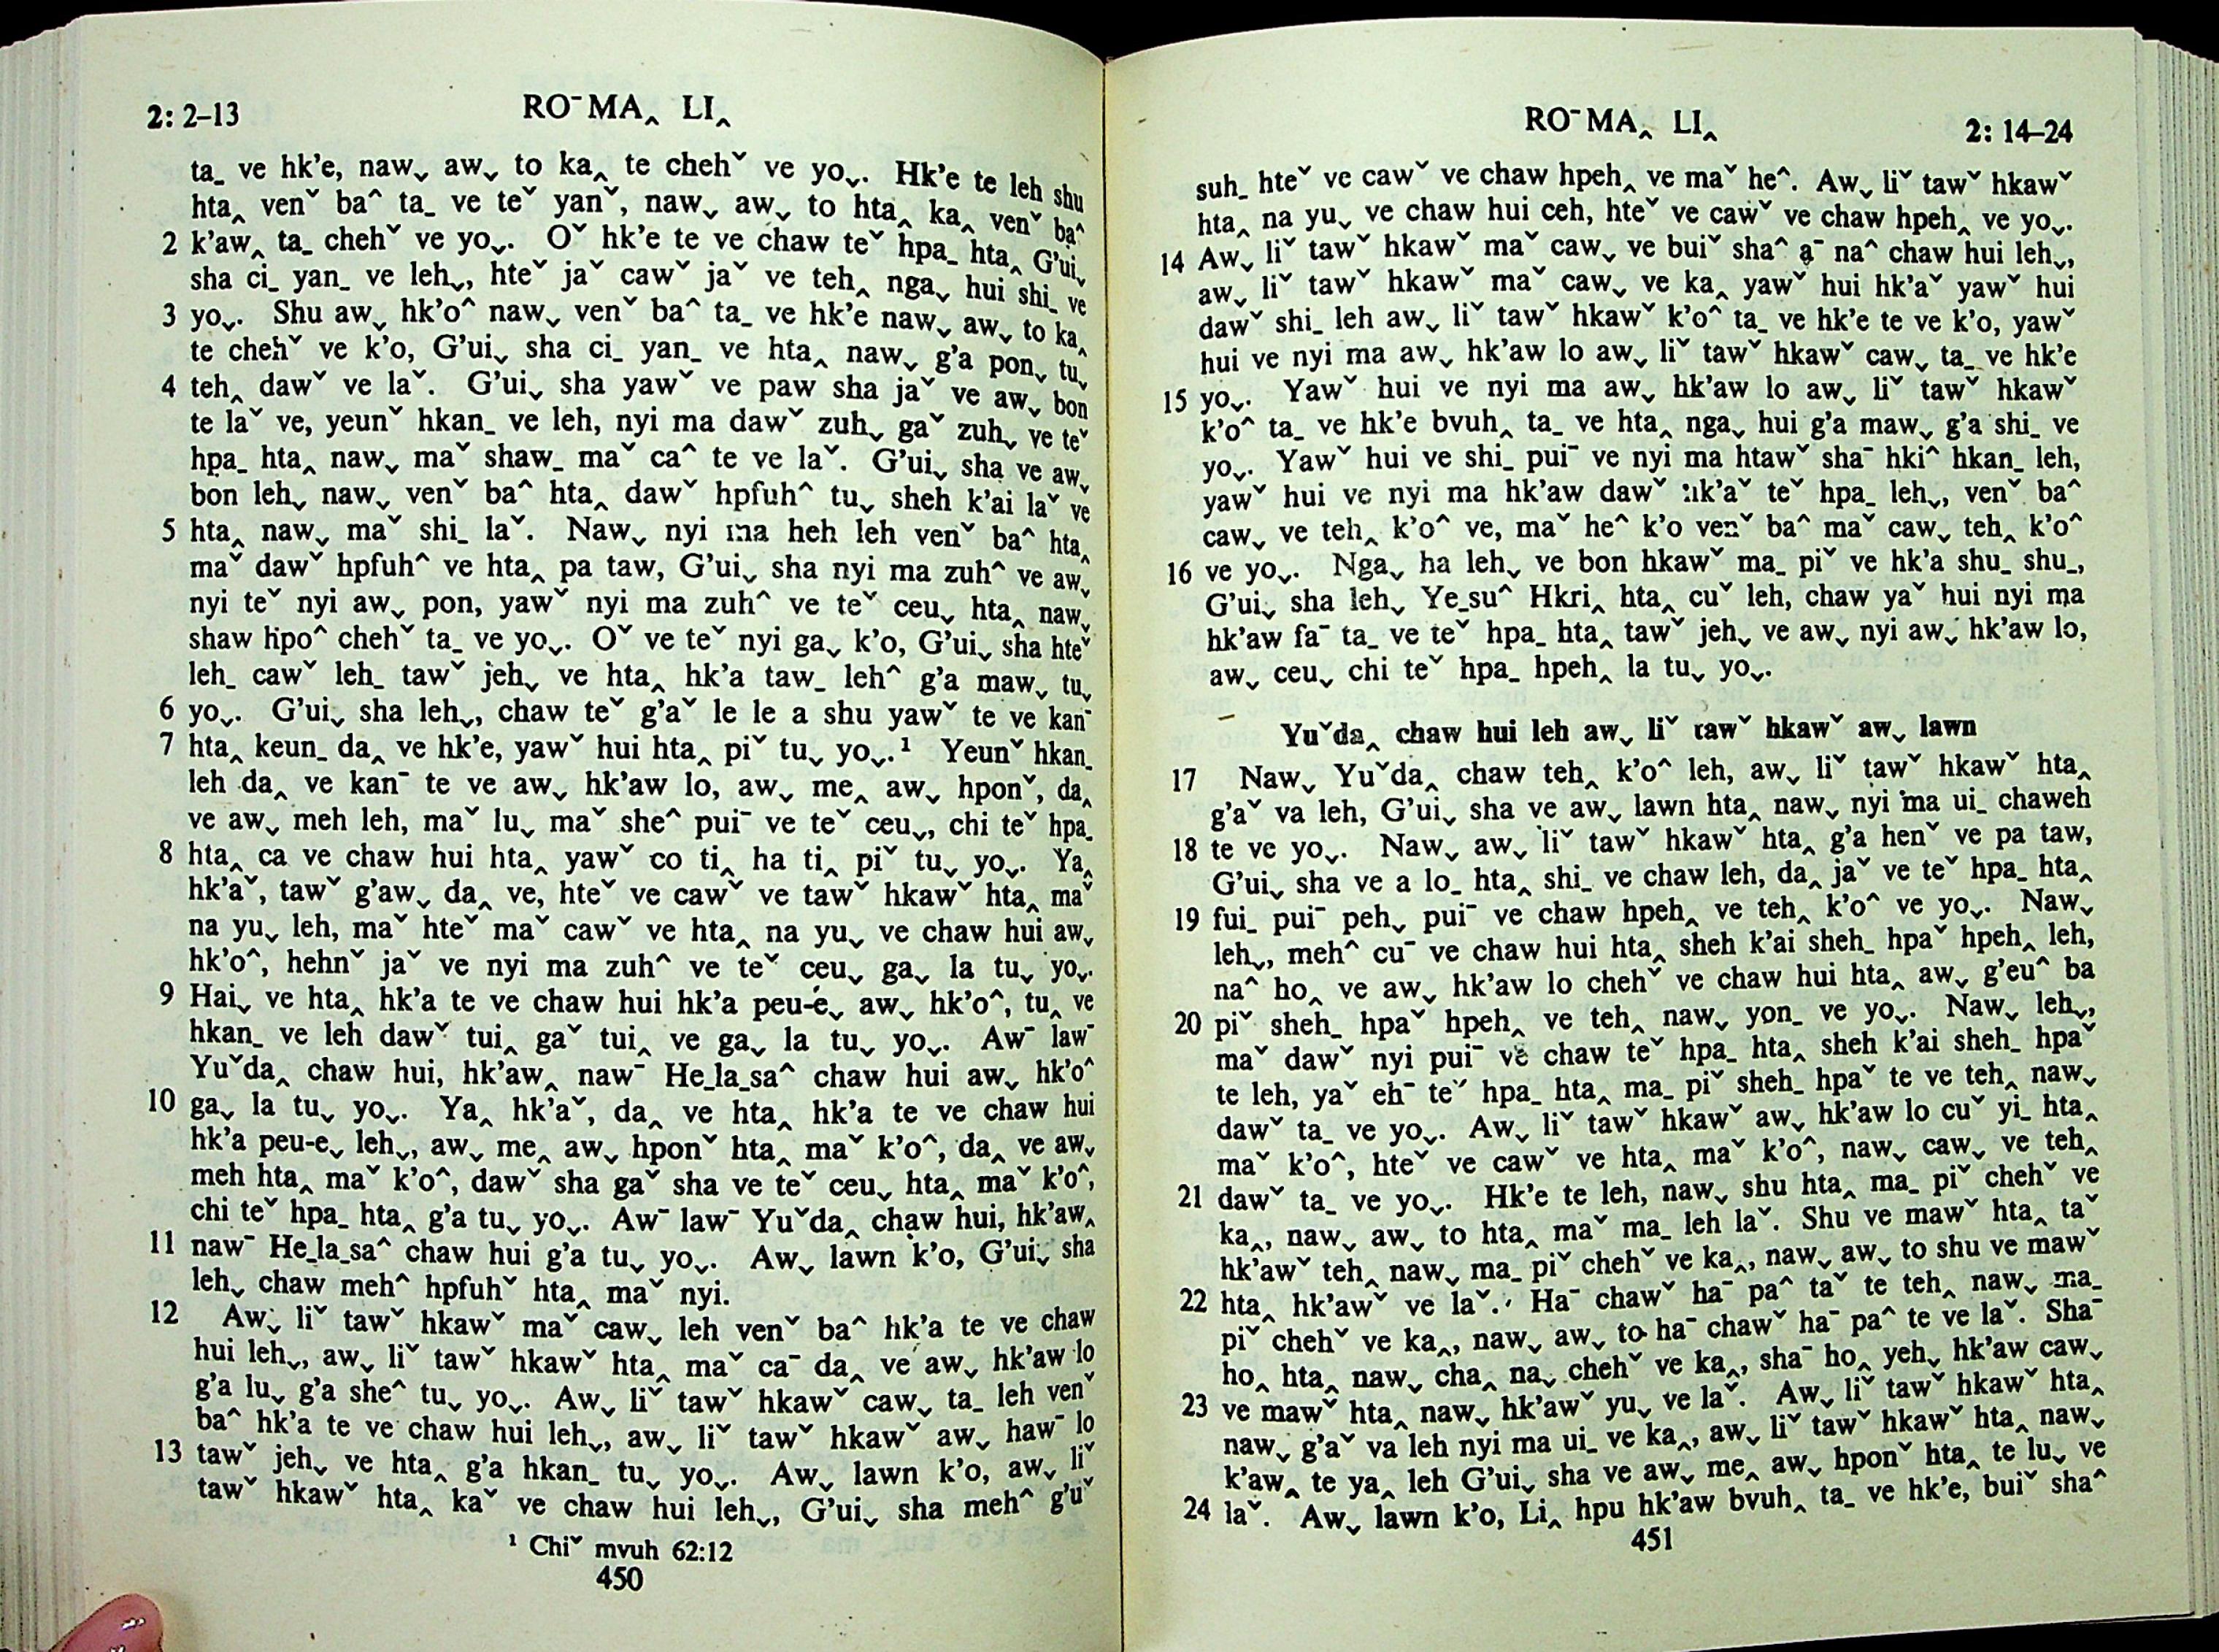 2: 2–13
RO¯MA‸ LI‸
ta_ ve hk’e, naw⌄ aw⌄ to ka‸ te chehˇ ve yo⌄. Hk’e te leh shu
hta‸ venˇ ba^ ta_ ve teˇ yanˇ, naw⌄ aw⌄ to hta‸ ka‸ venˇ ba^
2 k’aw‸ ta_ chehˇ ve yo⌄. Oˇ hk’e te ve chaw teˇ hpa_ hta‸ G’ui⌄
sha ci_ yan_ ve leh⌄, hteˇ jaˇ cawˇ jaˇ ve teh‸ nga⌄ hui shi_ ve
3 yo⌄. Shu aw⌄ hk’o^ naw⌄ venˇ ba^ ta_ ve hk’e naw⌄ aw⌄ to ka‸
te chehˇ ve k’o, G’ui⌄ sha ci_ yan_ ve hta‸ naw⌄ g’a pon⌄ tu⌄
4 teh‸ dawˇ ve laˇ. G’ui⌄ sha yawˇ ve paw sha jaˇ ve aw⌄ bon
te laˇ ve, yeunˇ hkan_ ve leh, nyi ma dawˇ zuh⌄ gaˇ zuh⌄ ve teˇ
hpa_ hta‸ naw⌄ maˇ shaw_ maˇ ca^ te ve laˇ. G’ui⌄ sha ve aw⌄
bon leh⌄ naw⌄ venˇ ba^ hta‸ dawˇ hpfuh^ tu⌄ sheh k’ai laˇ ve
5 hta‸ naw⌄ maˇ shi_ laˇ. Naw⌄ nyi ma heh leh venˇ ba^ hta‸
maˇ dawˇ hpfuh^ ve hta‸ pa taw, G’ui⌄ sha nyi ma zuh^ ve aw⌄
nyi teˇ nyi aw⌄ pon, yawˇ nyi ma zuh^ ve teˇ ceu⌄ hta‸ naw⌄
shaw hpo^ chehˇ ta_ ve yo⌄. Oˇ ve teˇ nyi ga⌄ k’o, G’ui⌄ sha hteˇ
leh_ cawˇ leh_ tawˇ jeh⌄ ve hta‸ hk’a taw_ leh^ g’a maw⌄ tu⌄
6 yo⌄. G’ui⌄ sha leh⌄, chaw teˇ g’aˇ le le a shu yawˇ te ve kan¯
7 hta‸ keun_ da‸ ve hk’e, yawˇ hui hta‸ piˇ tu⌄ yo⌄.¹ Yeunˇ hkan_
leh da‸ ve kan¯ te ve aw⌄ hk’aw lo, aw⌄ me‸ aw⌄ hponˇ, da‸
ve aw⌄ meh leh, maˇ lu⌄ maˇ she^ pui¯ ve teˇ ceu⌄, chi teˇ hpa_
8 hta‸ ca ve chaw hui hta‸ yawˇ co ti‸ ha ti‸ piˇ tu⌄ yo⌄. Ya‸
hk’aˇ, tawˇ g’aw⌄ da‸ ve, hteˇ ve cawˇ ve tawˇ hkawˇ hta‸ maˇ
na yu⌄ leh, maˇ hteˇ maˇ cawˇ ve hta‸ na yu⌄ ve chaw hui aw⌄
hk’o^, hehnˇ jaˇ ve nyi ma zuh^ ve teˇ ceu⌄ ga⌄ la tu⌄ yo⌄.
9 Hai⌄ ve hta‸ hk’a te ve chaw hui hk’a peu-e⌄ aw⌄ hk’o^, tu‸ ve
hkan_ ve leh dawˇ tui‸ gaˇ tui‸ ve ga⌄ la tu⌄ yo⌄. Aw¯ law¯
Yuˇda‸ chaw hui, hk’aw‸ naw¯ He_la_sa^ chaw hui aw⌄ hk’o^
10 ga⌄ la tu⌄ yo⌄. Ya‸ hk’aˇ, da‸ ve hta‸ hk’a te ve chaw hui
hk’a peu-e⌄ leh⌄, aw⌄ me‸ aw⌄ hponˇ hta‸ maˇ k’o^, da‸ ve aw⌄
meh hta‸ maˇ k’o^, dawˇ sha gaˇ sha ve teˇ ceu⌄ hta‸ maˇ k’o^,
chi teˇ hpa_ hta‸ g’a tu⌄ yo⌄. Aw¯ law¯ Yuˇda‸ chaw hui, hk’aw‸
11 naw¯ He_la_sa^ chaw hui g’a tu⌄ yo⌄. Aw⌄ lawn k’o, G’ui⌄ sha
leh⌄ chaw meh^ hpfuhˇ hta‸ maˇ nyi.
12 Aw⌄ liˇ tawˇ hkawˇ maˇ caw⌄ leh venˇ ba^ hk’a te ve chaw
hui leh⌄, aw⌄ liˇ tawˇ hkawˇ hta‸ maˇ ca¯ da‸ ve aw⌄ hk’aw lo
g’a lu⌄ g’a she^ tu⌄ yo⌄. Aw⌄ liˇ tawˇ hkawˇ caw⌄ ta_ leh venˇ
ba^ hk’a te ve chaw hui leh⌄, aw⌄ liˇ tawˇ hkawˇ aw⌄ haw¯ lo
13 tawˇ jeh⌄ ve hta‸ g’a hkan_ tu⌄ yo⌄. Aw⌄ lawn k’o, aw⌄ liˇ
tawˇ hkawˇ hta‸ kaˇ ve chaw hui leh⌄, G’ui⌄ sha meh^ g’uˇ
¹ Chiˇ mvuh 62:12
450
RO¯MA‸ LI‸
2: 14–24
suh_ hteˇ ve cawˇ ve chaw hpeh‸ ve maˇ he^. Aw⌄ liˇ tawˇ hkawˇ
hta‸ na yu⌄ ve chaw hui ceh, hteˇ ve cawˇ ve chaw hpeh‸ ve yo⌄.
14 Aw⌄ liˇ tawˇ hkawˇ maˇ caw⌄ ve buiˇ sha^ a¯ na^ chaw hui leh⌄,
aw⌄ liˇ tawˇ hkawˇ maˇ caw⌄ ve ka‸ yawˇ hui hk’aˇ yawˇ hui
dawˇ shi_ leh aw⌄ liˇ tawˇ hkawˇ k’o^ ta_ ve hk’e te ve k’o, yawˇ
hui ve nyi ma aw⌄ hk’aw lo aw⌄ liˇ tawˇ hkawˇ caw⌄ ta_ ve hk’e
15 yo⌄. Yawˇ hui ve nyi ma aw⌄ hk’aw lo aw⌄ liˇ tawˇ hkawˇ
k’o^ ta_ ve hk’e bvuh‸ ta_ ve hta‸ nga⌄ hui g’a maw⌄ g’a shi_ ve
yo⌄. Yawˇ hui ve shi_ pui¯ ve nyi ma htawˇ sha¯ hki^ hkan_ leh,
yawˇ hui ve nyi ma hk’aw dawˇ hk’aˇ teˇ hpa_ leh⌄, venˇ ba^
caw⌄ ve teh‸ k’o^ ve, maˇ he^ k’o venˇ ba^ maˇ caw⌄ teh‸ k’o^
16 ve yo⌄. Nga⌄ ha leh⌄ ve bon hkawˇ ma_ piˇ ve hk’a shu_ shu_,
G’ui⌄ sha leh⌄ Ye_su^ Hkri‸ hta‸ cuˇ leh, chaw yaˇ hui nyi ma
hk’aw fa¯ ta_ ve teˇ hpa_ hta‸ tawˇ jeh⌄ ve aw⌄ nyi aw⌄ hk’aw lo,
aw⌄ ceu⌄ chi teˇ hpa_ hpeh‸ la tu⌄ yo⌄.
Yuˇda‸ chaw hui leh aw⌄ liˇ tawˇ hkawˇ aw⌄ lawn
17 Naw⌄ Yuˇda‸ chaw teh‸ k’o^ leh, aw⌄ liˇ tawˇ hkawˇ hta‸
g’aˇ va leh, G’ui⌄ sha ve aw⌄ lawn hta‸ naw⌄ nyi ma ui_ chaweh
18 te ve yo⌄. Naw⌄ aw⌄ liˇ tawˇ hkawˇ hta‸ g’a henˇ ve pa taw,
G’ui⌄ sha ve a lo_ hta‸ shi_ ve chaw leh, da‸ jaˇ ve teˇ hpa_ hta‸
19 fui_ pui¯ peh⌄ pui¯ ve chaw hpeh‸ ve teh‸ k’o^ ve yo⌄. Naw⌄
leh⌄, meh^ cu¯ ve chaw hui hta‸ sheh k’ai sheh_ hpaˇ hpeh‸ leh,
na^ ho‸ ve aw⌄ hk’aw lo chehˇ ve chaw hui hta‸ aw⌄ g’eu^ ba
20 piˇ sheh_ hpaˇ hpeh‸ ve teh‸ naw⌄ yon_ ve yo⌄. Naw⌄ leh⌄,
maˇ dawˇ nyi pui¯ ve chaw teˇ hpa_ hta‸ sheh k’ai sheh_ hpaˇ
te leh, yaˇ eh¯ teˇ hpa_ hta‸ ma_ piˇ sheh_ hpaˇ te ve teh‸ naw⌄
dawˇ ta_ ve yo⌄. Aw⌄ liˇ tawˇ hkawˇ aw⌄ hk’aw lo cuˇ yi_ hta‸
maˇ k’o^, hteˇ ve cawˇ ve hta‸ maˇ k’o^, naw⌄ caw⌄ ve teh‸
21 dawˇ ta_ ve yo⌄. Hk’e te leh, naw⌄ shu hta‸ ma_ piˇ chehˇ ve
ka‸, naw⌄ aw⌄ to hta‸ maˇ ma_ leh laˇ. Shu ve mawˇ hta‸ taˇ
hk’awˇ teh‸ naw⌄ ma_ piˇ chehˇ ve ka‸, naw⌄ aw⌄ to shu ve mawˇ
22 hta‸ hk’awˇ ve laˇ. Ha¯ chawˇ ha¯ pa^ taˇ te teh‸ naw⌄ ma_
piˇ chehˇ ve ka‸, naw⌄ aw⌄ to ha¯ chawˇ ha¯ pa^ te ve laˇ. Sha¯
ho‸ hta‸ naw⌄ cha‸ na⌄ chehˇ ve ka‸, sha¯ ho‸ yeh⌄ hk’aw caw⌄
23 ve mawˇ hta‸ naw⌄ hk’awˇ yu⌄ ve laˇ. Aw⌄ liˇ tawˇ hkawˇ hta‸
naw⌄ g’aˇ va leh nyi ma ui_ ve ka‸, aw⌄ liˇ tawˇ hkawˇ hta‸ naw⌄
k’aw‸ te ya‸ leh G’ui⌄ sha ve aw⌄ me‸ aw⌄ hponˇ hta‸ te lu⌄ ve
24 laˇ. Aw⌄ lawn k’o, Li‸ hpu hk’aw bvuh‸ ta_ ve hk’e, buiˇ sha^
451